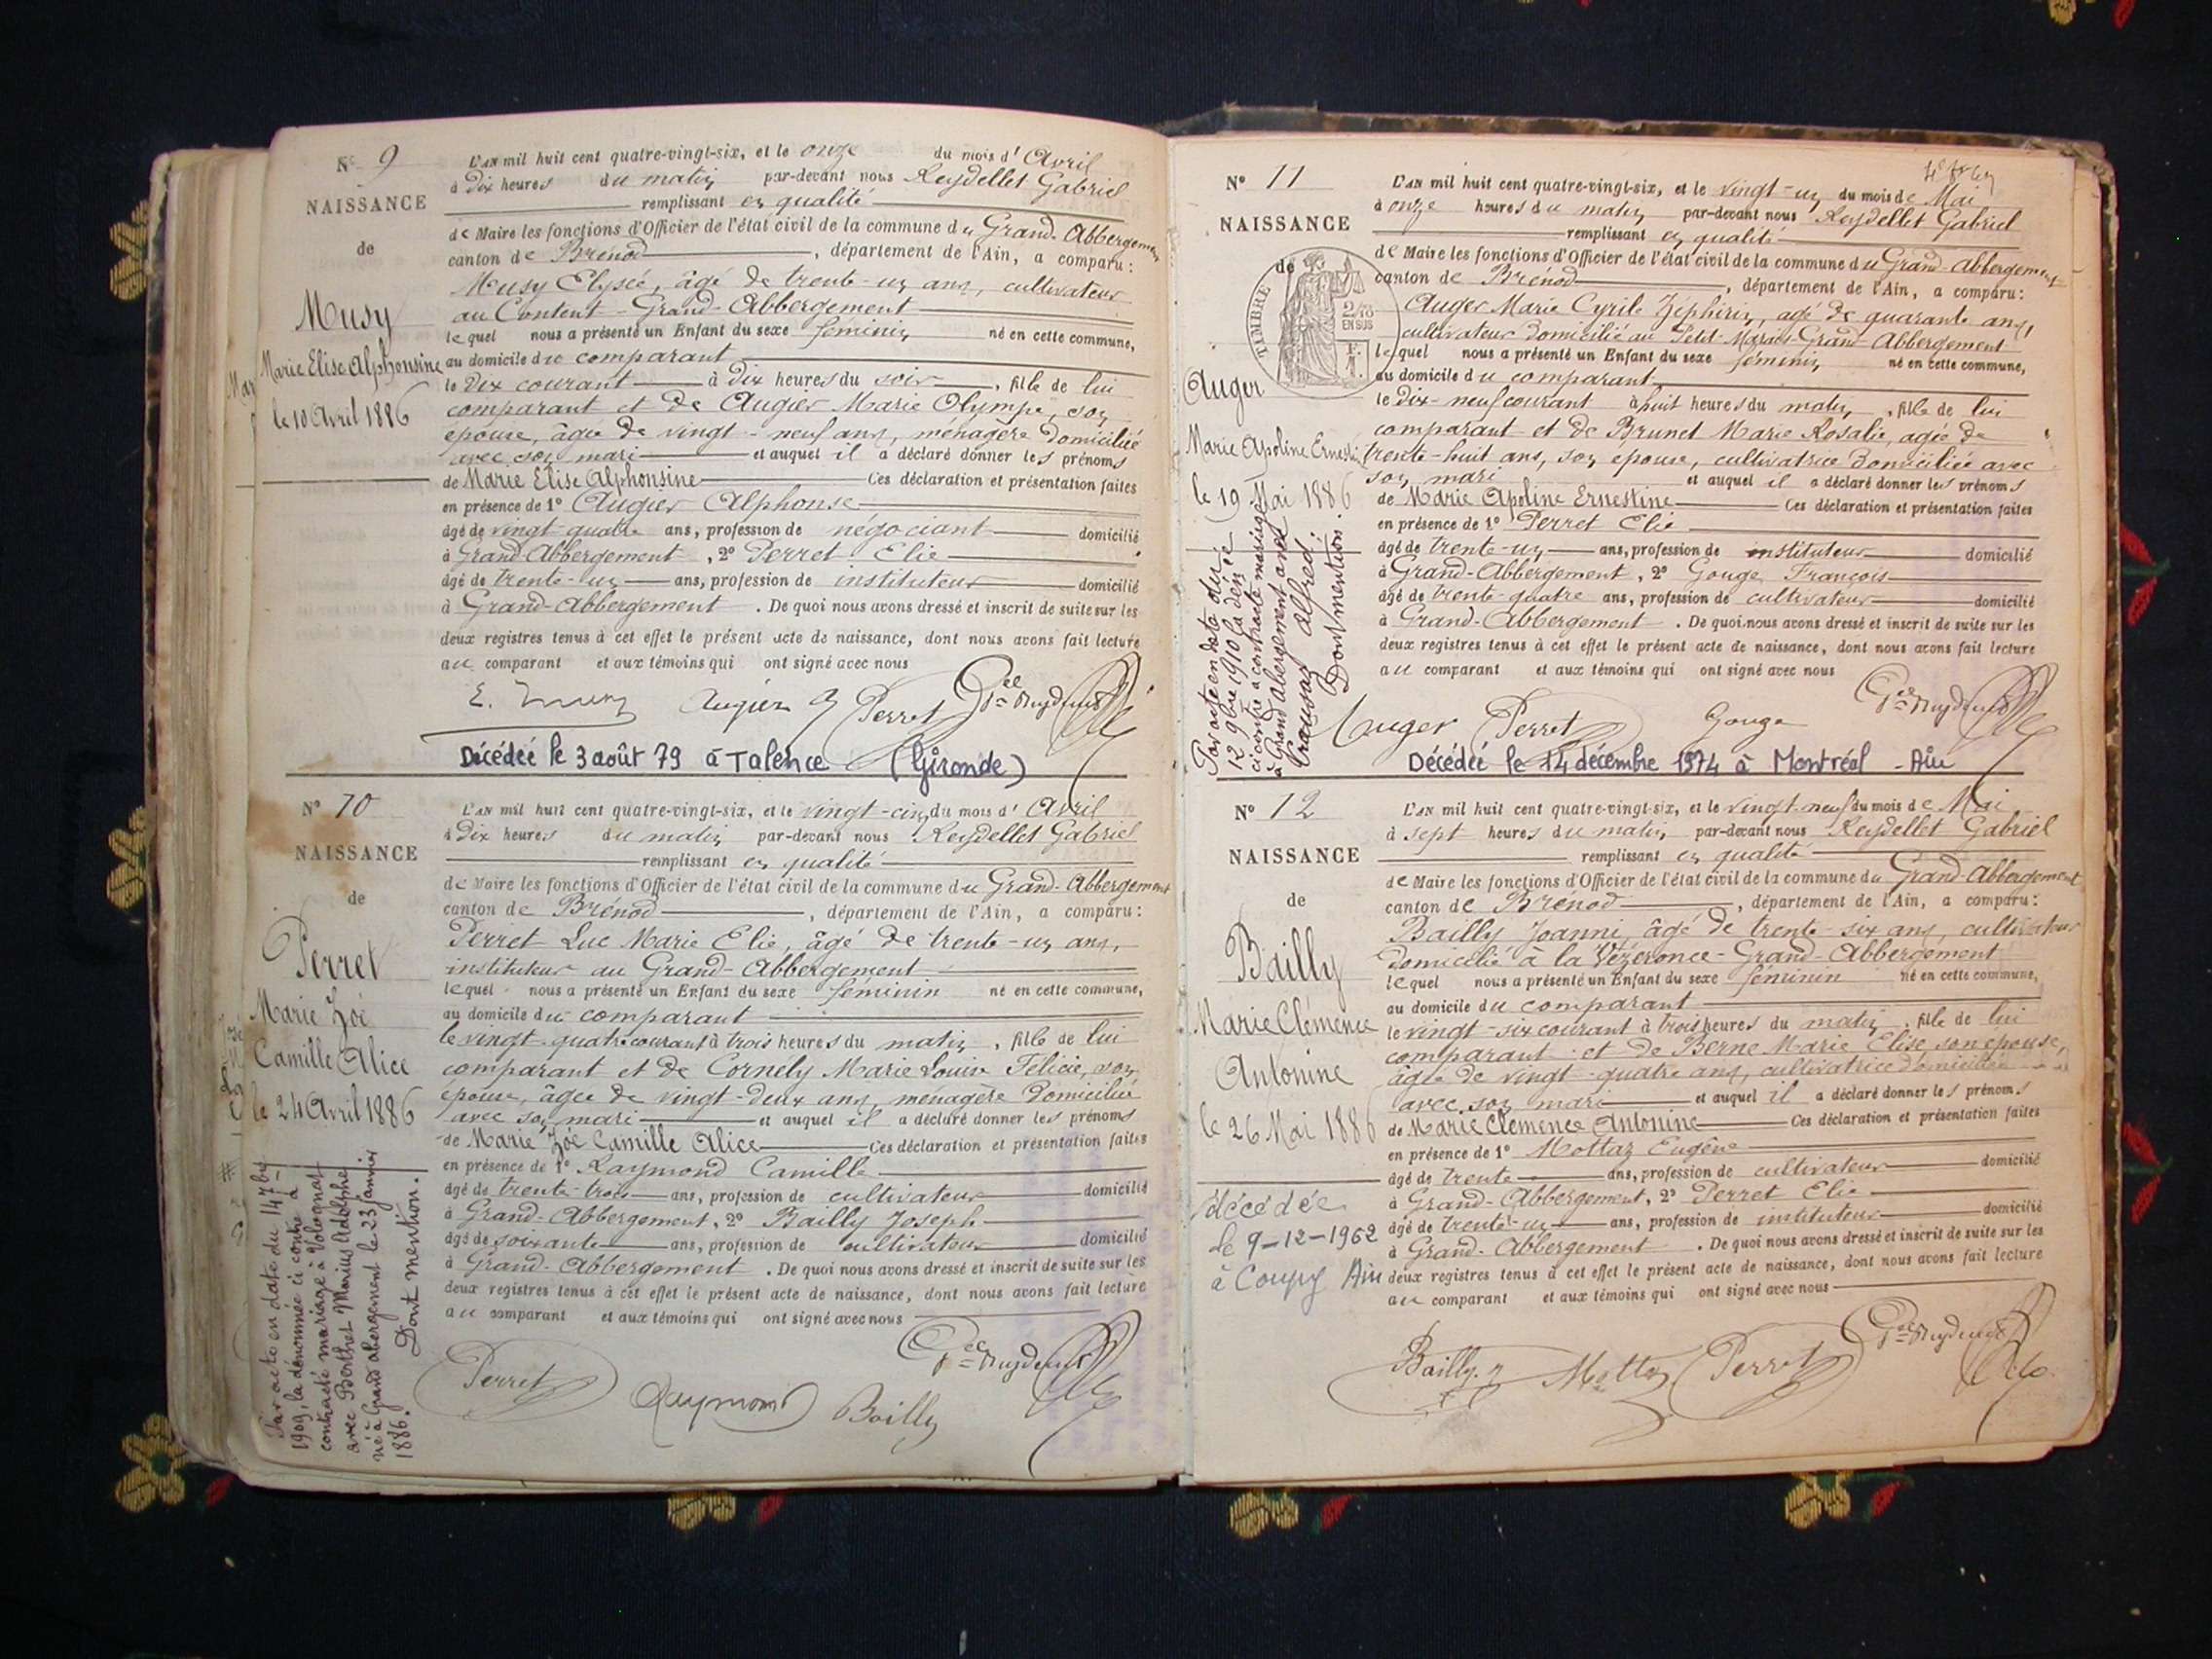 N° 9
NAISSANCE
de
Musy
Marie Elise Alphonsine
le 10 Avril 1886
L'AN mil huit cent quatre-vingt-six, et le onze du mois d'Avril
à Dix heures du matin par-devant nous Reydellet Gabriel
remplissant en qualité
de Maire les fonctions d'Officier de l'état civil de la commune du Grand-Abbergement
canton de Brénod, département de l'Ain, a comparu:
Musy Elysée, âgé de trente-un ans, cultivateur
au Content-Grand-Abbergement
lequel nous a présenté un Enfant du sexe féminin né en cette commune,
au domicile du comparant
le Dix courant à dix heures du soir, fille de lui
comparant et de Augier Marie Olympe, son
épouse, âgée de vingt-neuf ans, ménagère domiciliée
avec son mari et auquel il a déclaré donner les prénoms
de Marie Elise Alphonsine Ces déclaration et présentation faites
en présence de 1° Augier Alphonse
âgé de vingt quatre ans, profession de négociant domicilié
à Grand Abbergement, 2° Perret Elie
âgé de trente-un ans, profession de instituteur domicilié
à Grand-Abbergement. De quoi nous avons dressé et inscrit de suite sur les
deux registres tenus à cet effet le présent acte de naissance, dont nous avons fait lecture
au comparant et aux témoins qui ont signé avec nous
E. Musy Augier Perret
Décédée le 3 août 79 à Talence (Gironde)
N° 10
NAISSANCE
de
Perret
Marie Zoé
Camille Alice
le 24 Avril 1886
Par acte en date du 14 7bre
1909, la dénommée ci contre a
contracté mariage à Volognat
avec Berthet Marius Adolphe
né à Grand abergement le 23 janvier
1886. Dont mention.
L'AN mil huit cent quatre-vingt-six, et le vingt-cinq du mois d'Avril
à Dix heures du matin par-devant nous Reydellet Gabriel
remplissant en qualité
de Maire les fonctions d'Officier de l'état civil de la commune du Grand-Abbergement
canton de Brénod, département de l'Ain, a comparu:
Perret Luc Marie Elie, âgé de trente-un ans,
instituteur au Grand-Abbergement
lequel nous a présenté un Enfant du sexe féminin né en cette commune,
au domicile du comparant
le vingt-quatre courant à trois heures du matin, fille de lui
comparant et de Cornély Marie Louise Félicie, son
épouse, âgée de vingt-deux ans, ménagère domiciliée
avec son mari et auquel il a déclaré donner les prénoms
de Marie Zoé Camille Alice Ces déclaration et présentation faites
en présence de 1° Raymond Camille
âgé de trente-trois ans, profession de cultivateur domicilié
à Grand-Abbergement, 2° Bailly Joseph
âgé de soixante ans, profession de cultivateur domicilié
à Grand-Abbergement. De quoi nous avons dressé et inscrit de suite sur les
deux registres tenus à cet effet le présent acte de naissance, dont nous avons fait lecture
au comparant et aux témoins qui ont signé avec nous
Perret Raymond Bailly
N° 11
NAISSANCE
de
TIMBRE
2/10
EN SUS
Auger
Marie Apoline Ernestine
le 19 Mai 1886
Par acte en date du
12 9bre 1910 la dén ée
ci contre a contracté mariage
à Grand abergement avec
Alfred.
Dont mention.
L'AN mil huit cent quatre-vingt-six, et le vingt-un du mois de Mai
à onze heures du matin par-devant nous Reydellet Gabriel
remplissant en qualité
de Maire les fonctions d'Officier de l'état civil de la commune du Grand-Abbergement
canton de Brénod, département de l'Ain, a comparu:
Auger Marie Cyrile Zéphirin, agé de quarante ans,
cultivateur domicilié au Petit-Marais-Grand-Abbergement
lequel nous a présenté un Enfant du sexe féminin né en cette commune,
au domicile du comparant
le dix-neuf courant à huit heures du matin, fille de lui
comparant et de Brunet Marie Rosalie, agée de
trente-huit ans, son épouse, cultivatrice domiciliée avec
son mari et auquel il a déclaré donner les prénoms
de Marie Apoline Ernestine Ces déclaration et présentation faites
en présence de 1° Perret Elie
âgé de trente-un ans, profession de instituteur domicilié
à Grand-Abbergement, 2° Gouge François
âgé de trente-quatre ans, profession de cultivateur domicilié
à Grand-Abbergement. De quoi nous avons dressé et inscrit de suite sur les
deux registres tenus à cet effet le présent acte de naissance, dont nous avons fait lecture
au comparant et aux témoins qui ont signé avec nous
Auger Perret Gouge
Décédée le 14 décembre 1974 à Montréal - Ain
N° 12
NAISSANCE
de
Bailly
Marie Clémence
Antonine
le 26 Mai 1886
décédée
le 9-12-1962
à Coupy Ain
L'AN mil huit cent quatre-vingt-six, et le vingt-neuf du mois de Mai
à sept heures du matin, par-devant nous Reydellet Gabriel
remplissant en qualité
de Maire les fonctions d'Officier de l'état civil de la commune du Grand-Abbergement
canton de Brénod, département de l'Ain, a comparu:
Bailly Joanni, âgé de trente-six ans, cultivateur
domicilié à la Vézeronce-Grand-Abbergement
lequel nous a présenté un Enfant du sexe féminin né en cette commune,
au domicile du comparant
le vingt-six courant à trois heures du matin, fille de lui
comparant et de Berne Marie Elise son épouse,
âgée de vingt-quatre ans, cultivatrice domiciliée
avec son mari et auquel il a déclaré donner les prénoms
de Marie Clémence Antonine Ces déclaration et présentation faites
en présence de 1° Mottaz Eugène
âgé de trente ans, profession de cultivateur domicilié
à Grand-Abbergement, 2° Perret Elie
âgé de trente-un ans, profession de instituteur domicilié
à Grand-Abbergement. De quoi nous avons dressé et inscrit de suite sur les
deux registres tenus à cet effet le présent acte de naissance, dont nous avons fait lecture
au comparant et aux témoins qui ont signé avec nous
Bailly Mottaz Perret